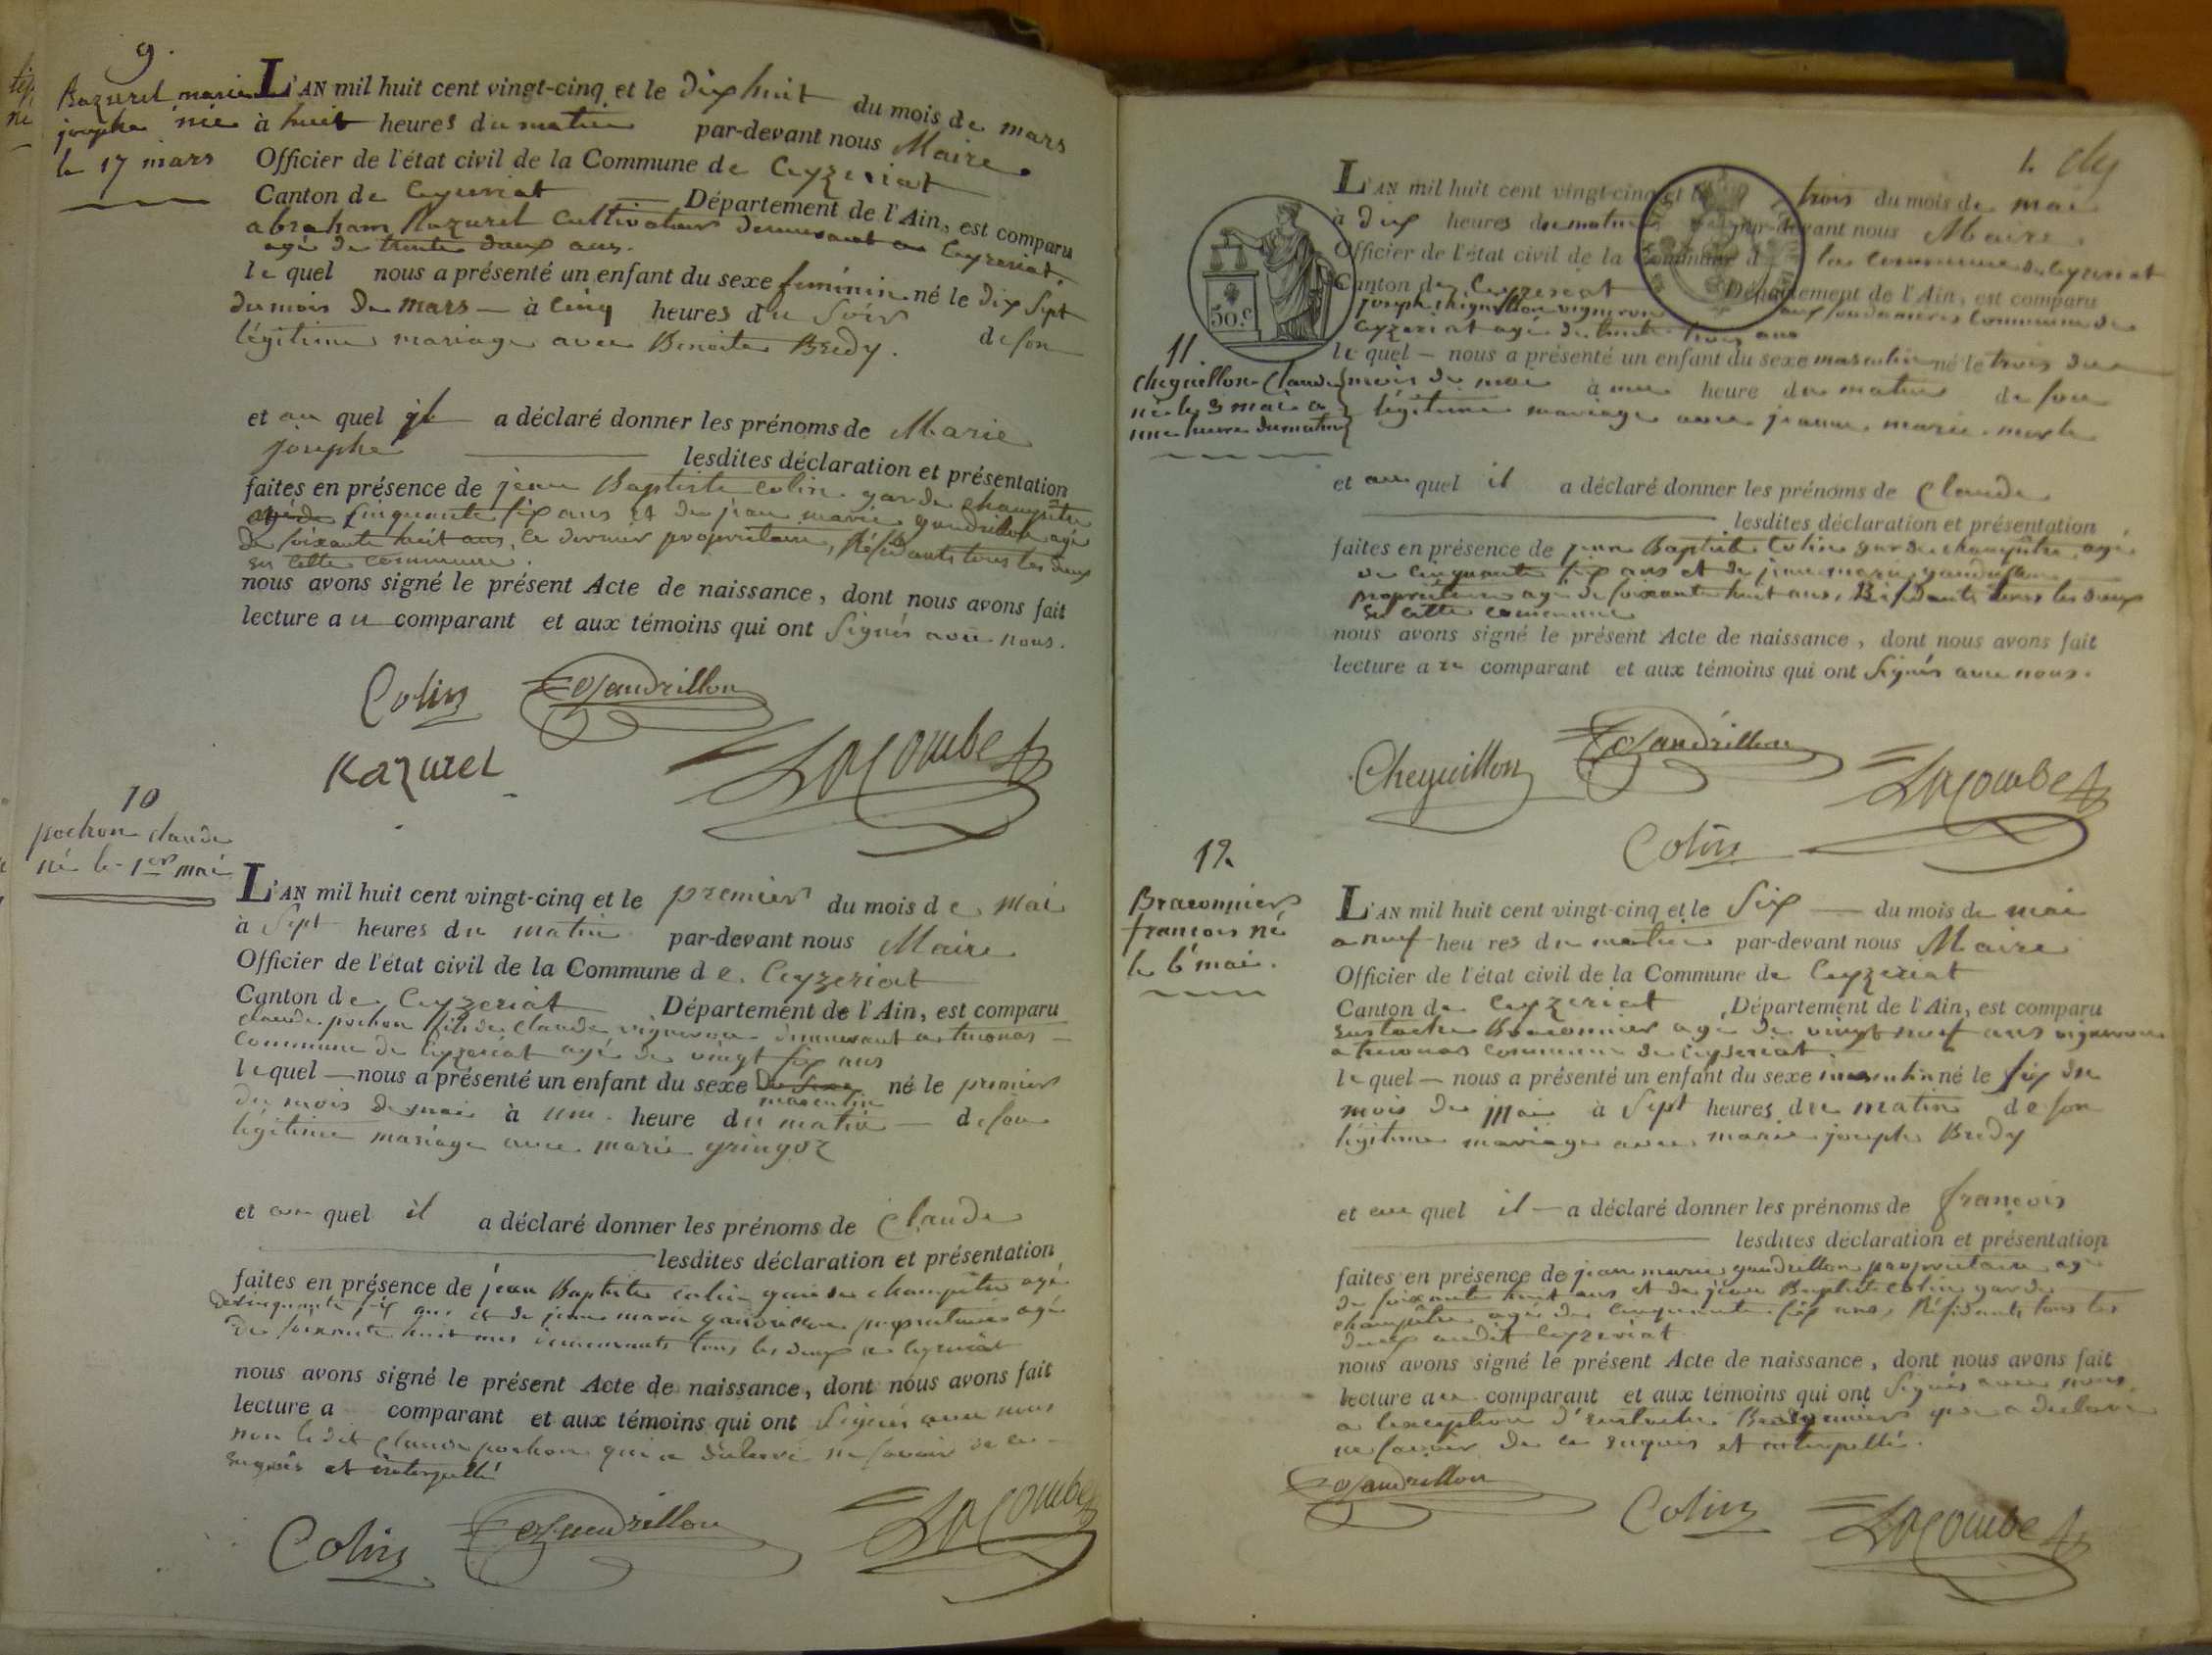 9.
Bazurel marie
josephe née
le 17 mars
L'AN mil huit cent vingt-cinq et le dix huit du mois de mars
à huit heures du matin par-devant nous Maire
Officier de l'état civil de la Commune de Ceyzeriat
Canton de Ceyzeriat Département de l'Ain, est comparu
abraham Razurel cultivateur demeurant a Ceyzeriat
agé de trente deux ans.
le quel nous a présenté un enfant du sexe feminin né le dix sept
du mois de mars à cinq heures du soir de son
légitime mariage avec Benoite Bredy.
et au quel il a déclaré donner les prénoms de Marie
josephe lesdites déclaration et présentation
faites en présence de jean Baptiste colin garde champêtre
agé de cinquante six ans et de jean marie gandrillon agé
de soixante huit ans, ce dernier propriétaire, Résidants tous les deux
en cette commune.
nous avons signé le présent Acte de naissance, dont nous avons fait
lecture au comparant et aux témoins qui ont signés avec nous.
Colin Gandrillon
Razurel Lacombe
10
pochon claude
né le 1er mai
L'AN mil huit cent vingt-cinq et le premier du mois de mai
à sept heures du matin par-devant nous Maire
Officier de l'état civil de la Commune de Ceyzeriat
Canton de Ceyzeriat Département de l'Ain, est comparu
claude pochon fils de claude vigneron demeurant a
commune de Ceyzeriat agé de vingt six ans
lequel nous a présenté un enfant du sexe né le premier
masculin
du mois de mai à une heure du matin de son
légitime mariage avec marie gringoz
et au quel il a déclaré donner les prénoms de Claude
lesdites déclaration et présentation
faites en présence de jean Baptiste colin garde champêtre agé
de cinquante six ans et de jean marie gandrillon propriétaire agé
de soixante huit ans demeurants tous les deux a Ceyzeriat
nous avons signé le présent Acte de naissance, dont nous avons fait
lecture a comparant et aux témoins qui ont signés avec nous
non ledit claude pochon qui a déclaré ne savoir de ce
enquis et interpellé
Colin Gandrillon Lacombe
L'AN mil huit cent vingt-cinq et le trois du mois de mai
à dix heures du matin par-devant nous Maire
Officier de l'état civil de la Commune d la commune de Ceyzeriat
Canton de Ceyzeriat Département de l'Ain, est comparu
joseph cheguillon vigneron commune de
Ceyzeriat agé de trente trois ans
50.c
11.
cheguillon Claude
né le 3 mai a
une heure du matin
le quel nous a présenté un enfant du sexe masculin né le trois du
mois de mai à une heure du matin de son
légitime mariage avec jeanne marie
et au quel il a déclaré donner les prénoms de Claude
lesdites déclaration et présentation
faites en présence de jean Baptiste Colin garde champêtre agé
de cinquante six ans et de jean marie gandrillon
propriétaire agé de soixante huit ans, Résidants tous les deux
en cette commune
nous avons signé le présent Acte de naissance, dont nous avons fait
lecture au comparant et aux témoins qui ont signés avec nous.
Cheguillon Gandrillon Lacombe
Colin
12
Braconnier
francois né
le 6 mai.
L'AN mil huit cent vingt-cinq et le six du mois de mai
a neuf heures du matin par-devant nous Maire
Officier de l'état civil de la Commune de Ceyzeriat
Canton de Ceyzeriat Département de l'Ain, est comparu
Eustache Braconnier agé de vingt neuf ans vigneron
a commune de Ceyzeriat.
le quel nous a présenté un enfant du sexe masculin né le six du
mois de mai à sept heures du matin de son
légitime mariage avec marie josephe Bredy
et au quel il a déclaré donner les prénoms de françois
lesdites déclaration et présentation
faites en présence de jean marie gandrillon propriétaire agé
de soixante huit ans et de jean Baptiste colin garde
champêtre agé de cinquante six ans, Résidants tous les
deux audit Ceyzeriat
nous avons signé le présent Acte de naissance, dont nous avons fait
lecture au comparant et aux témoins qui ont signés avec nous
a l'exception d'Eustache Braconnier qui a déclaré
ne savoir de ce enquis et interpellé.
Gandrillon Colin Lacombe